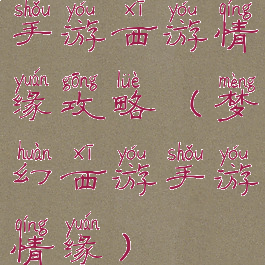 shǒu yóu xī yóu qíng
手游西游情
yuán gōng lüè mèng
缘攻略（梦
huàn xī yóu shǒu yóu
幻西游手游
qíng yuán
情缘）